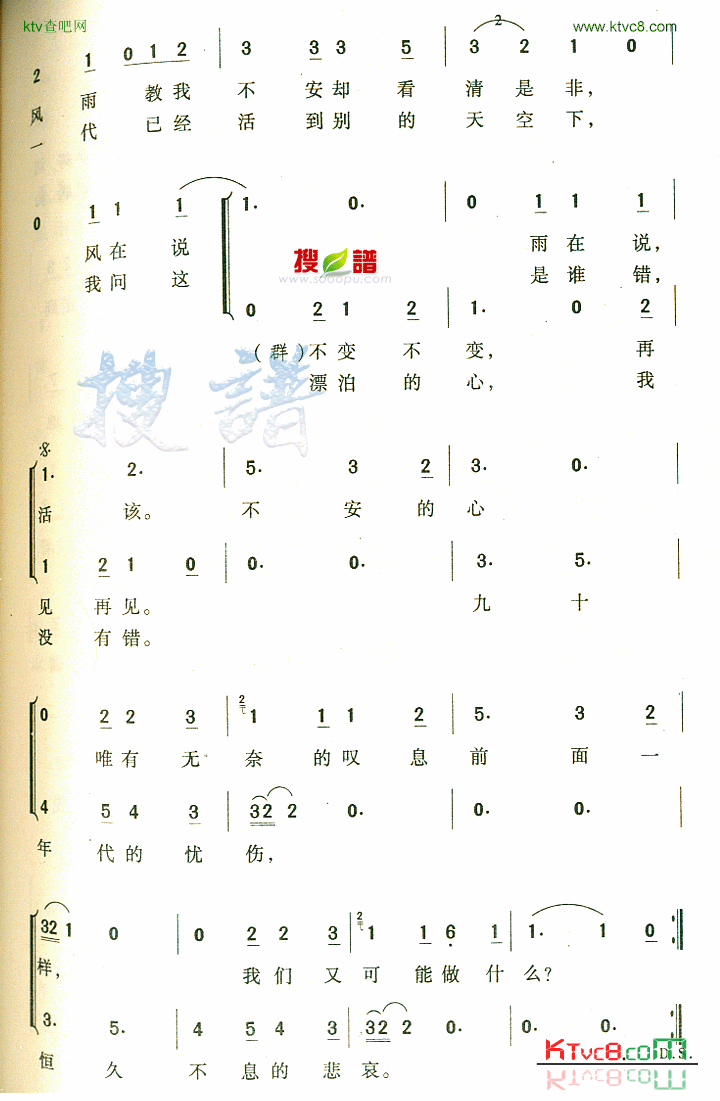 ktv查吧网
www.ktvc8.com
2 1 0 1 2 3 3 3 5 3 2 2 1 0
风 雨 教我 不 安却 看 清 是 非,
一 代 已经 活 到别 的 天 空 下,
0 1 1 1 1. 0. 0 1 1 1
风在 说 雨在 说,
我问 这 是谁 错,
搜谱
www.sooopu.com
0 2 1 2 1. 0 2
(群)不变 不 变, 再
漂泊 的 心, 我
搜谱
1. 2. 5. 3 2 3. 0.
活 该。 不 安 的 心
1 2 1 0 0. 0. 3. 5.
见 再见。 九 十
没 有错。
0 2 2 3 2 1 1 1 2 5. 3 2
唯有 无 奈 的叹 息 前 面 一
4 5 4 3 32 2 0. 0. 0.
年 代的 忧 伤,
32 1 0 0 2 2 3 2 1 1 6 1 1. 1 0
样, 我们 又 可 能做 什 么?
3. 5. 4 5 4 3 32 2 0. 0. 0.
恒 久 不 息的 悲 哀。
D.S.
KTvc8.com